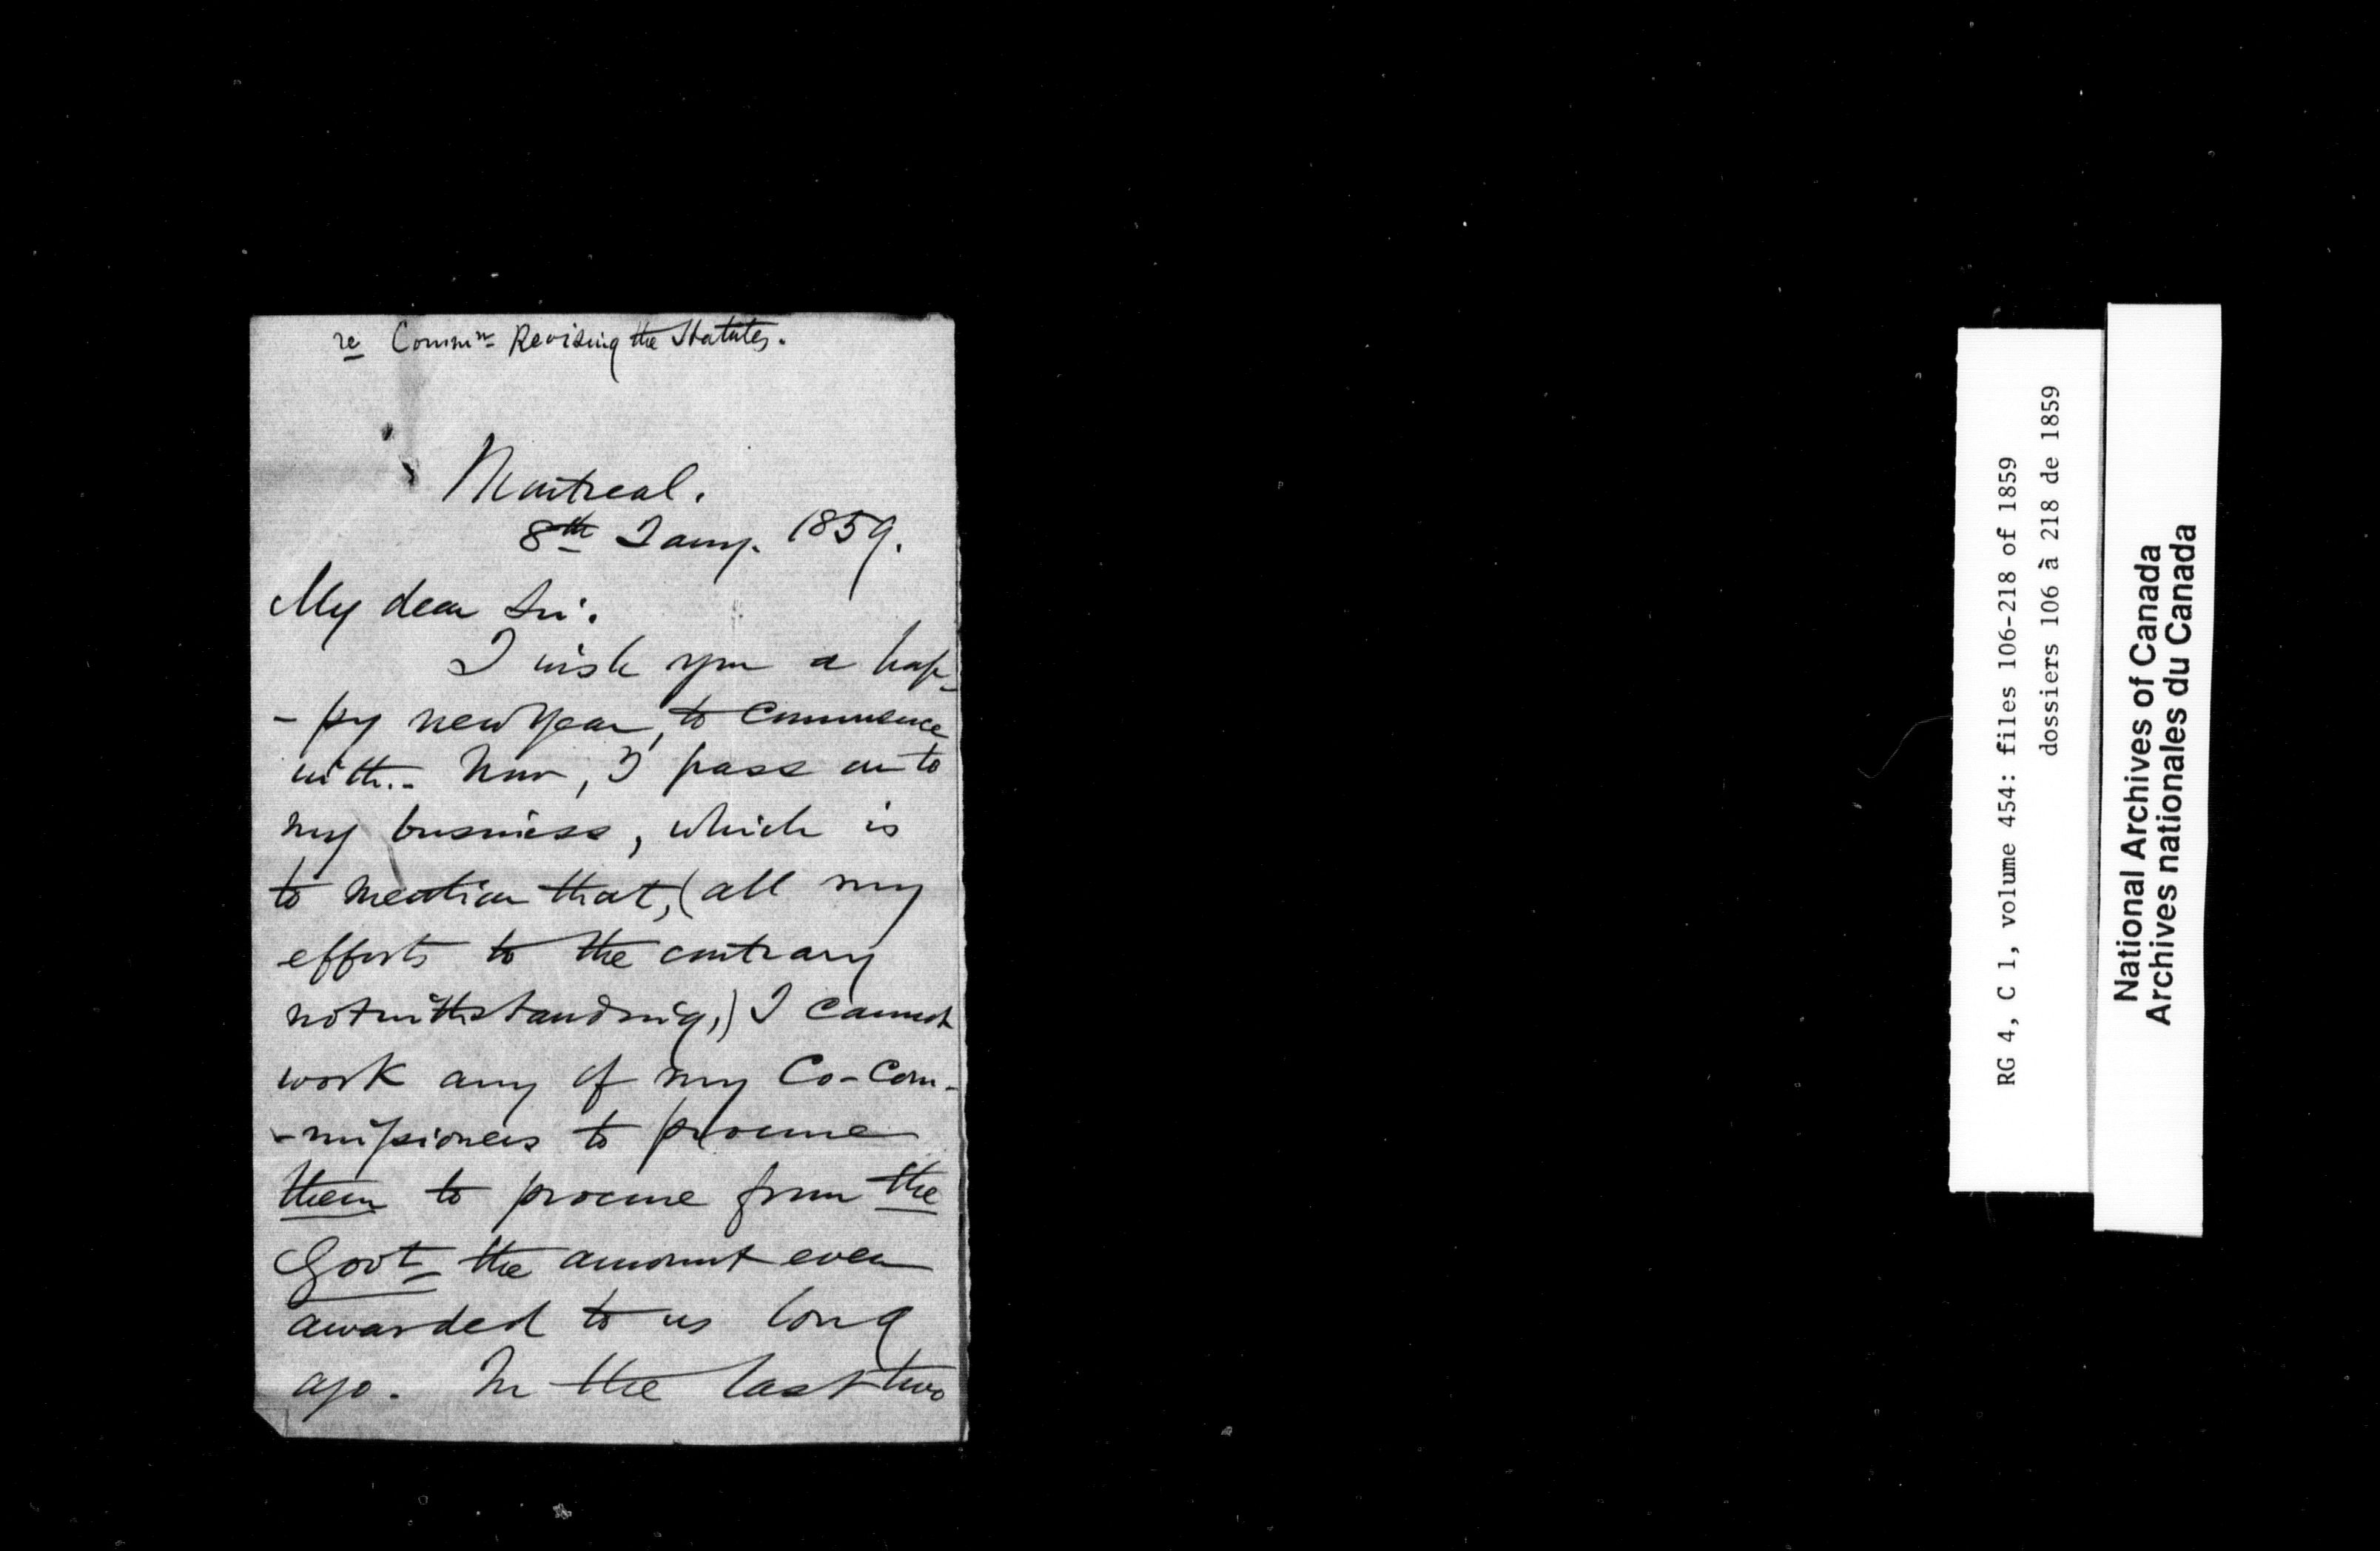 re Commn Revising the Statutes.
Montreal.
8th Jany. 1859.
My dear Sir.
I wish you a hap-
-py new Year, to commence
with.- Now, I pass on to
my business, which is
to mention that, (all my
efforts to the contrary
notwithstanding,) I cannot
work any of my Co-Com-
-missioners to procure
them to procure from the
Govt the amount even
awarded to us long
ago. In the last two
RG 4, C 1, volume 454: files 106-218 of 1859
dossiers 106 à 218 de 1859
National Archives of Canada
Archives nationales du Canada